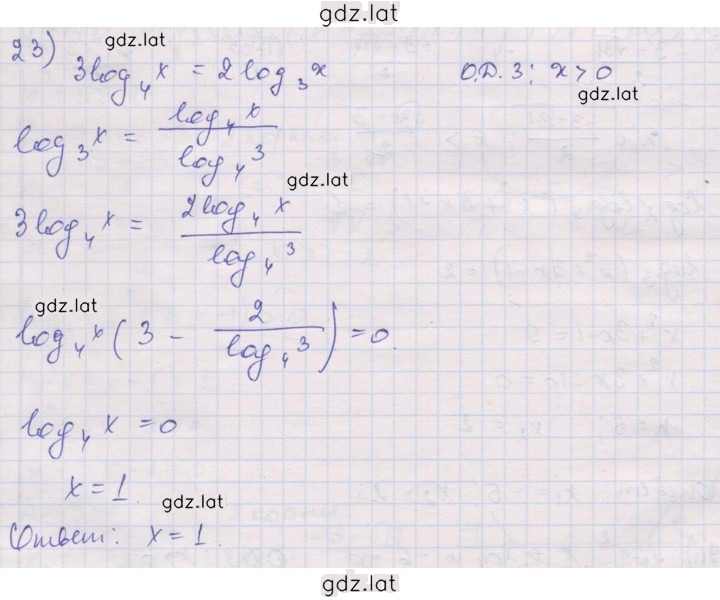 gdz.lat
23) gdz.lat
3log₄x = 2log₃x О.Д.З: x > 0
gdz.lat
log₃x = log₄x / log₄3
gdz.lat
3log₄x = 2log₄x / log₄3
gdz.lat
log₄x (3 - 2 / log₄3) = 0.
log₄x = 0
x = 1.
gdz.lat
Ответ: x = 1.
gdz.lat